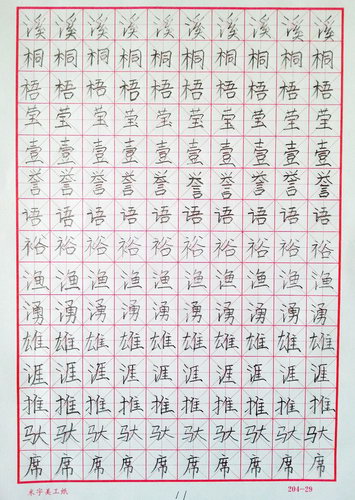 溪溪溪溪溪溪溪溪溪溪
桐桐桐桐桐桐桐桐桐桐
梧梧梧梧梧梧梧梧梧梧
莹莹莹莹莹莹莹莹莹莹
壹壹壹壹壹壹壹壹壹壹
誉誉誉誉誉誉誉誉誉誉
语语语语语语语语语语
裕裕裕裕裕裕裕裕裕裕
渔渔渔渔渔渔渔渔渔渔
湧湧湧湧湧湧湧湧湧湧
雄雄雄雄雄雄雄雄雄雄
涯涯涯涯涯涯涯涯涯涯
推推推推推推推推推推
驮驮驮驮驮驮驮驮驮驮
席席席席席席席席席席
米字美工纸 11 204-29